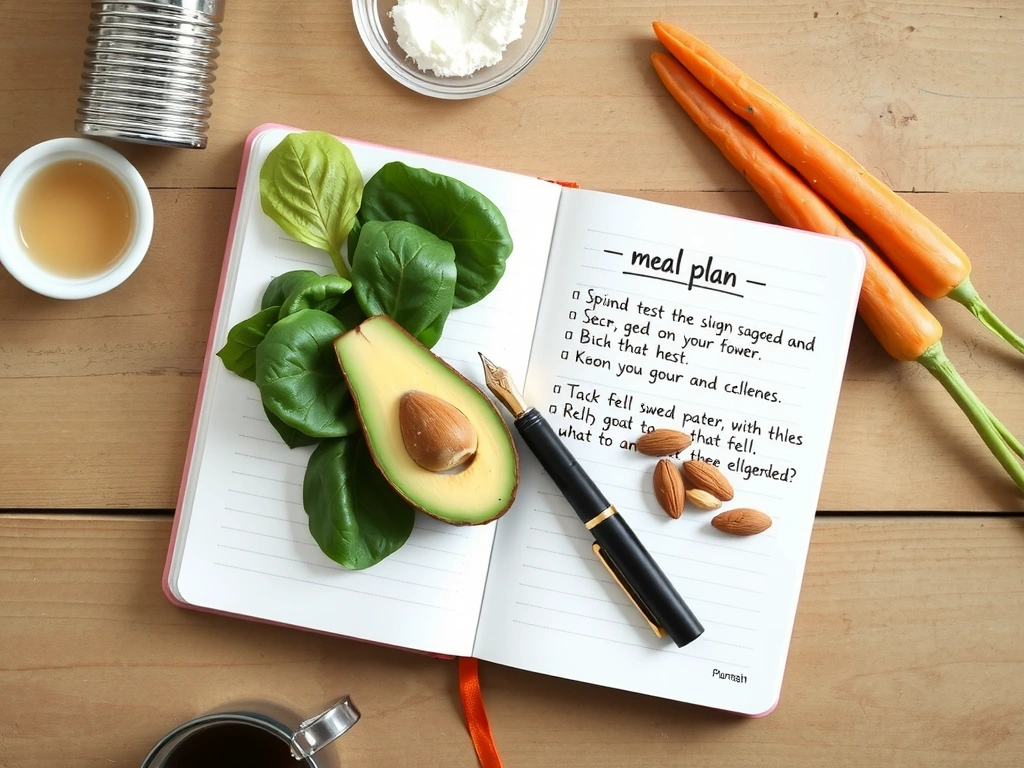 — meal plan —
▯ Spiind test the slign sagoed and
▯ Secr, ged on your fower.
▯ Bich that hest.
▯ Keon you gour and cellenes.
▯ Tack fell swed pater, with thles
▯ Relly goat to that fell.
what to an thee ellgerded?